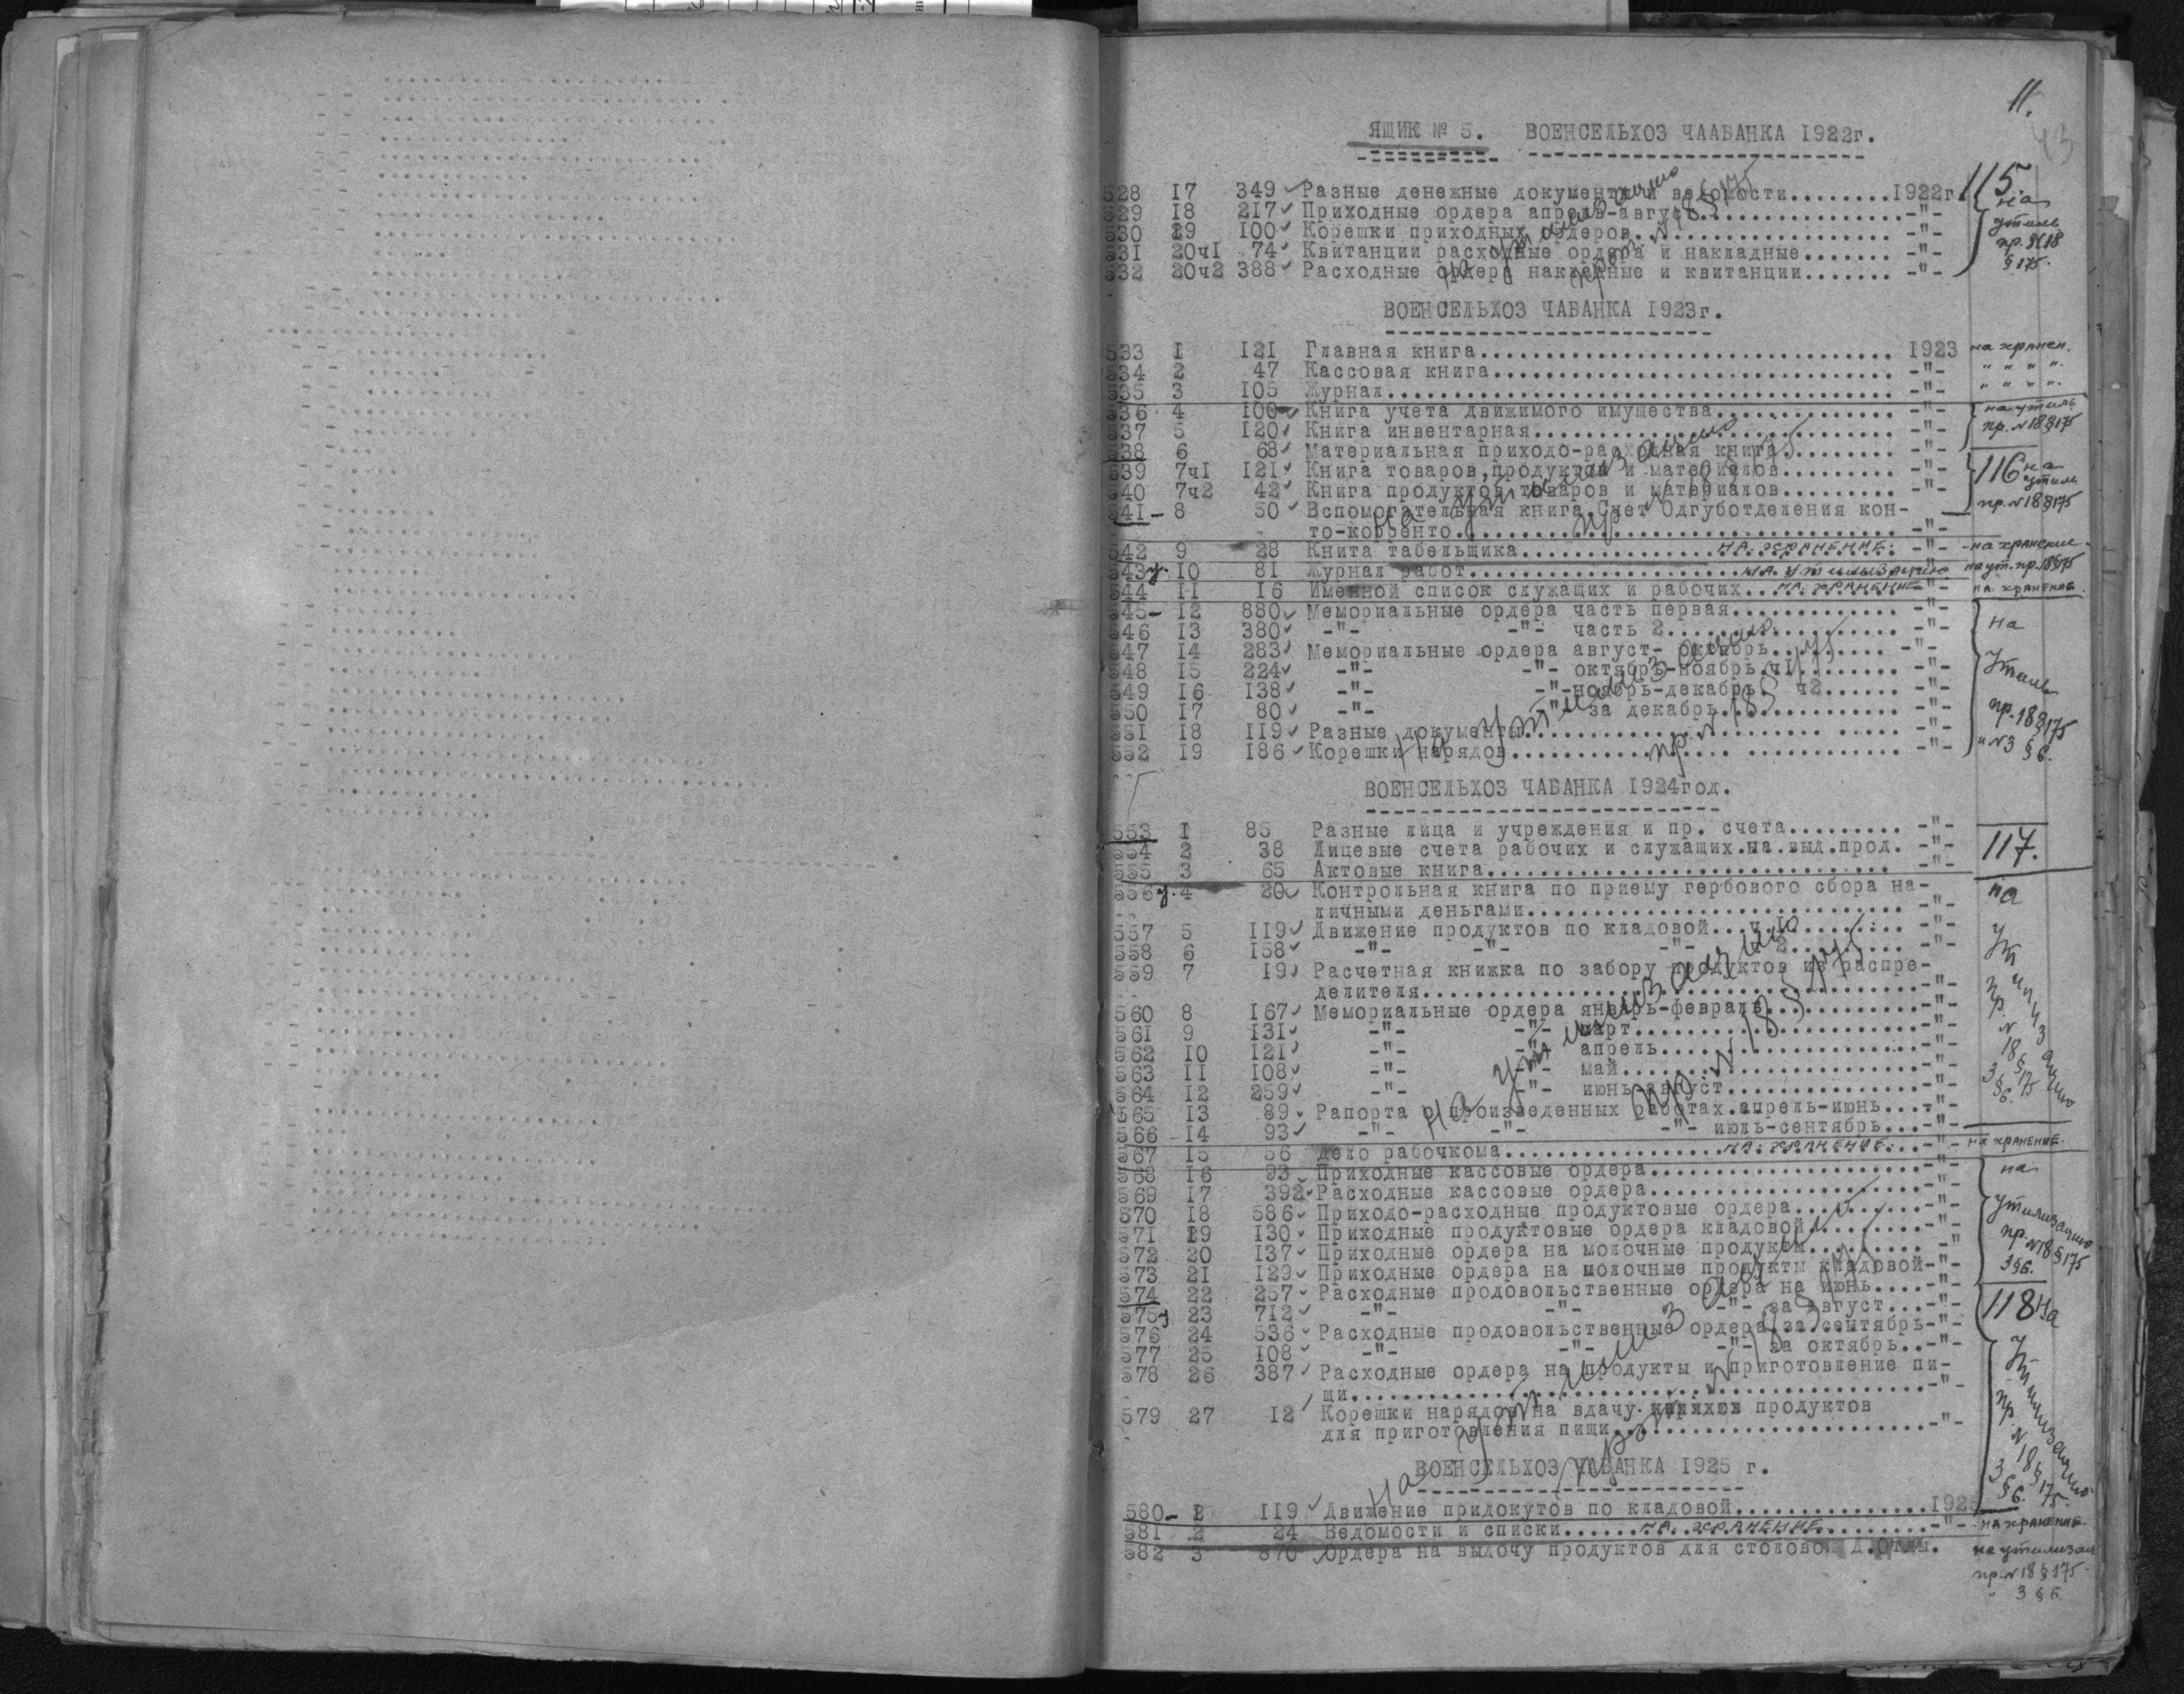 11.
43
ЯЩИК № 5. ВОЕНСЕЛЬХОЗ ЧААБАНКА 1922г.
528 17 349 Разные денежные документы и ведомости........1922г. 115.
529 18 217 Приходные ордера апрель-август............... -"- на
530 19 100 Корешки приходных ордеров.................... -"- утиль
531 20ч1 74 Квитанции расходные ордера и накладные....... -"- пр. №18
532 20ч2 388 Расходные ордера накладные и квитанции....... -"- § 175.
на утилизацию
прот. №18 § 175
ВОЕНСЕЛЬХОЗ ЧАБАНКА 1923г.
533 1 121 Главная книга................................ 1923 на хранен.
534 2 47 Кассовая книга............................... -"- " " " ".
535 3 105 Журнал....................................... -"- " " " ".
536 4 100 Книга учета движимого имущества.............. -"- на утиль
537 5 120 Книга инвентарная............................ -"- пр. №18 § 175
538 6 68 Материальная приходо-расходная книга......... -"-
539 7ч1 121 Книга товаров,продуктов и материалов......... -"- 116 на
540 7ч2 42 Книга продуктов товаров и материалов......... -"- утиль
541- 8 50 Вспомогательная книга Счет Одгуботделения кон- пр. №18 § 175
то-корренто.................................. -"-
542 9 28 Книта табельщика................НА ХРАНЕНИЕ. -"- на хранение
543 у. 10 81 Журнал работ.....................НА УТИЛИЗАЦИЮ на ут. пр. 18 § 175
544 11 16 Именной список служащих и рабочих...НА ХРАНЕНИЕ -"- НА ХРАНЕНИЕ.
545- 12 880 Мемориальные ордера часть первая............. -"- на
546 13 380 -"- -"- часть 2.................. -"-
547 14 283 Мемориальные ордера август- октябрь......... -"- Утиль
548 15 224 -"- -"- октябрь-ноябрь.ч1........ -"-
549 16 138 -"- -"-ноябрь-декабрь. ч2...... -"-
550 17 80 -"- -"- за декабрь.............. -"- пр. 18 § 175
551 18 119 Разные документы....................... ..... -"- " №3 § 6.
552 19 186 Корешки нарядов................ ............ -"-
на утилизацию
пр. №18 § 175
ВОЕНСЕЛЬХОЗ ЧАБАНКА 1924год.
553 1 85 Разные лица и учреждения и пр. счета......... -"-
554 2 38 Лицевые счета рабочих и служащих.на.выд.прод. -"- 117.
555 3 65 Актовые книга............................... -"-
556 у. 4 20 Контрольная книга по приему гербового сбора на- на
личными деньгами............................. -"-
557 5 119 Движение продуктов по кладовой...ч.1......... -"- Утилизацию
558 6 158 -"- -"- -"- ч 2......... -"-
559 7 19 Расчетная книжка по забору продуктов из распре-
делителя......................................-"- пр.
560 8 167 Мемориальные ордера январь-февраль............-"- №
561 9 131 -"- -"- март......................-"- 18 § 175
562 10 121 -"- -"- апрель....................-"- 3 § 6.
563 11 108 -"- -"- май.......................-"-
564 12 259 -"- -"- июнь-август...............-"-
565 13 89 Рапорта о произведенных работах.апрель-июнь....-"-
566 14 93 -"- -"- -"- июль-сентябрь...-"-
на утилизацию
пр. №18 § 175
567 15 56 Дело рабочкома.................НА ХРАНЕНИЕ...-"- НА ХРАНЕНИЕ.
568 16 93 Приходные кассовые ордера.....................-"- на
569 17 392 Расходные кассовые ордера.....................-"-
570 18 586 Приходо-расходные продуктовые ордера..........-"- утилизацию
571 19 130 Приходные продуктовые ордера кладовой.........-"- пр. №18 § 175
572 20 137 Приходные ордера на молочные продукты......... -" 3 § 6.
573 21 129 Приходные ордера на молочные продукты кладовой-"-
574 22 257 Расходные продовольственные ордера на июнь....-"-
575 у 23 712 -"- -"- -"- за август...-"- 118 На
576 24 536 Расходные продовольственные ордера.за.сентябрь-"-
577 25 108 -"- -"- -"- за октябрь..-"- Утилизацию
578 26 387 Расходные ордера на продукты и приготовление пи-
щи............................................-"- пр. №
579 27 12 Корешки нарядов на вдачу продуктов 18 § 175.
для приготовления пищи........................-"- 3 § 6.
на утилизацию
прот. № 18 § 175
ВОЕНСЕЛЬХОЗ ЧАБАНКА 1925 г.
580- 1 119 Движение придокутов по кладовой...............1925
581 2 24 Ведомости и списки......НА ХРАНЕНИЕ.........-"- НА ХРАНЕНИЕ
582 3 870 Ордера на выдочу продуктов для столовой Д.Отды. на утилизац
пр. №18 § 175-
" 3 § 6.